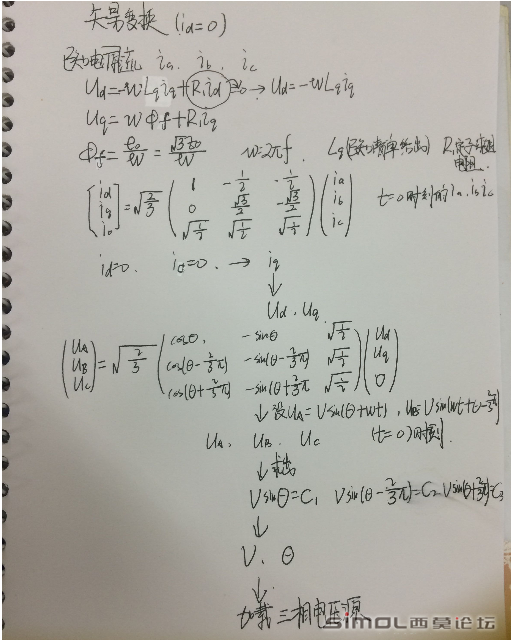 矢量变换 (id=0)
ia. ib. ic
Ud=-wLqiq+R1id≈0→Ud=-wLqiq
Uq=wΦf+R1iq
Φf=e0/w=√3E0/w w=2πf. Lq(清单给出) R1定子
[id iq io]=√(2/3)(1 -1/2 -1/2 0 √3/2 -√3/2 √(1/2) √(1/2) √(1/2))(ia ib ic) t=0时刻的ia.ib.ic
id=0. i0=0. → iq
↓
Ud. Uq
(UA UB UC)=√(2/3)(cosθ, -sinθ √(1/2) cos(θ-2/3π) -sin(θ-2/3π) √(1/2) cos(θ+2/3π) -sin(θ+2/3π) √(1/2))(Ud Uq 0)
↓设UA=Vsin(θ+wt),
UA. UB. UC (t=0)时刻
↓求出
Vsinθ=C1 Vsin(θ-2/3π)=C2 Vsin(θ+2/3π)=C3
↓
V. θ
↓
加载三相电压源
SIMOL西莫论坛